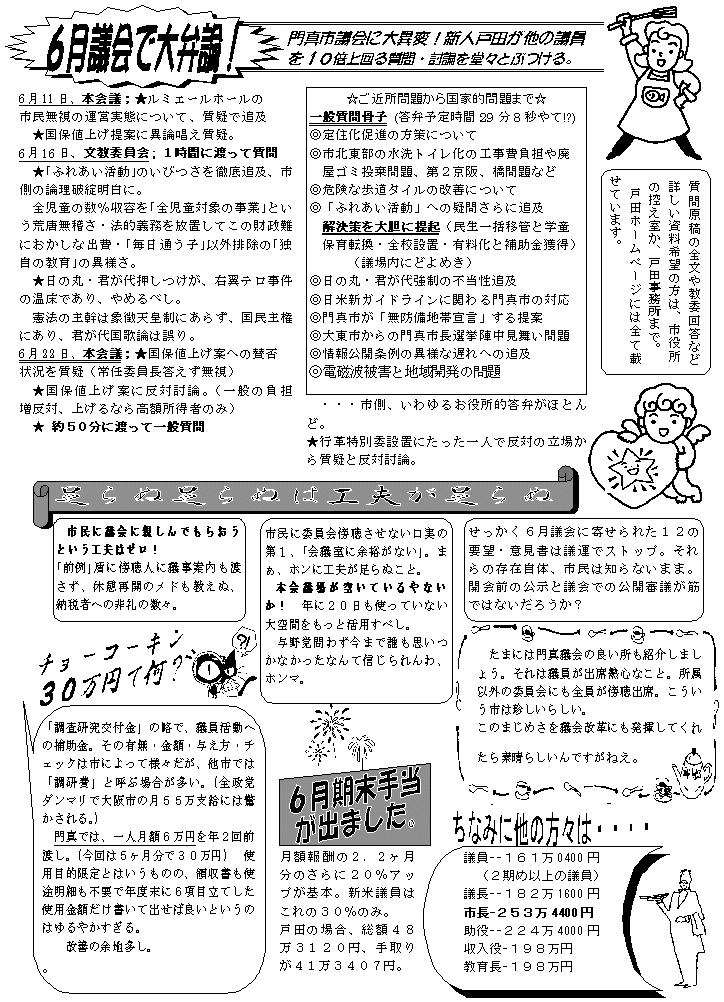 6月議会で大弁論！
門真市議会に大異変！新人戸田が他の議員
を１０倍上回る質問・討論を堂々とぶつける。
6月11日、本会議；★ルミエールホールの
市民無視の運営実態について、質疑で追及
★国保値上げ提案に異論唱え質疑。
6月16日、文教委員会；１時間に渡って質問
★「ふれあい活動」のいびつさを徹底追及、市
側の論理破綻明白に。
全児童の数％収容を「全児童対象の事業」とい
う荒唐無稽さ・法的義務を放置してこの財政難
におかしな出費・「毎日通う子」以外排除の「独
自の教育」の異様さ。
★日の丸・君が代押しつけが、右翼テロ事件
の温床であり、やめるべし。
憲法の主幹は象徴天皇制にあらず、国民主権
にあり、君が代国歌論は誤り。
6月22日、本会議；★国保値上げ案への賛否
状況を質疑（常任委員長答えず無視）
★国保値上げ案に反対討論。（一般の負担
増反対、上げるなら高額所得者のみ）
★ 約５０分に渡って一般質問
☆ご近所問題から国家的問題まで☆
一般質問骨子 (答弁予定時間 29 分 8 秒やて!?)
◎定住化促進の方策について
◎市北東部の水洗トイレ化の工事費負担や廃
屋ゴミ投棄問題、第２京阪、橋問題など
◎危険な歩道タイルの改善について
◎「ふれあい活動」への疑問さらに追及
解決策を大胆に提起（民生一括移管と学童
保育転換・全校設置・有料化と補助金獲得）
（議場内にどよめき）
◎日の丸・君が代強制の不当性追及
◎日米新ガイドラインに関わる門真市の対応
◎門真市が「無防備地帯宣言」する提案
◎大東市からの門真市長選挙陣中見舞い問題
◎情報公開条例の異様な遅れへの追及
◎電磁波被害と地域開発の問題
・・・市側、いわゆるお役所的答弁がほとん
ど。
★行革特別委設置にたった一人で反対の立場か
ら質疑と反対討論。
質問原稿の全文や教委回答など
詳しい資料希望の方は、市役所
の控え室か、戸田事務所まで。
戸田ホームページには全て載
せています。
足らぬ足らぬは工夫が足らぬ
市民に議会に親しんでもらおう
という工夫はゼロ！
「前例」盾に傍聴人に議事案内も渡
さず、休憩再開のメドも教えぬ、
納税者への非礼の数々。
市民に委員会傍聴させない口実の
第１、「会議室に余裕がない」。ま
ぁ、ホンに工夫が足らぬこと。
本会議場が空いているやない
か！ 年に２０日も使っていない
大空間をもっと活用すべし。
与野党問わず今まで誰も思いつ
かなかったなんて信じられんわ、
ホンマ。
せっかく６月議会に寄せられた１２の
要望・意見書は議運でストップ。それ
らの存在自体、市民は知らないまま。
開会前の公示と議会での公開審議が筋
ではないだろうか？
チョーコーキン
３０万円て何？
?!
「調査研究交付金」の略で、議員活動へ
の補助金。その有無・金額・与え方・チ
ェックは市によって様々だが、他市では
「調研費」と呼ぶ場合が多い。(全政党
ダンマリで大阪市の月５５万支給には驚
かされる。)
門真では、一人月額６万円を年２回前
渡し。(今回は５ヶ月分で３０万円) 使
用目的限定とはいうものの、領収書も使
途明細も不要で年度末に６項目立てした
使用金額だけ書いて出せば良いというの
はゆるやかすぎる。
改善の余地多し。
。
６月期末手当
が出ました。
月額報酬の２．２ヶ月
分のさらに２０％アッ
プが基本。新米議員は
これの３０％のみ。
戸田の場合、総額４８
万３１２０円、手取り
が４１万３４０７円。
たまには門真議会の良い所も紹介しまし
ょう。それは議員が出席熱心なこと。所属
以外の委員会にも全員が傍聴出席。こうい
う市は珍しいらしい。
このまじめさを議会改革にも発揮してくれ
たら素晴らしいんですがねえ。
ちなみに他の方々は・・・・
議員--１６１万 0400 円
（２期め以上の議員）
議長--１８２万 1600 円
市長-２５３万 4400 円
助役--２２４万 4000 円
収入役-１９８万円
教育長-１９８万円